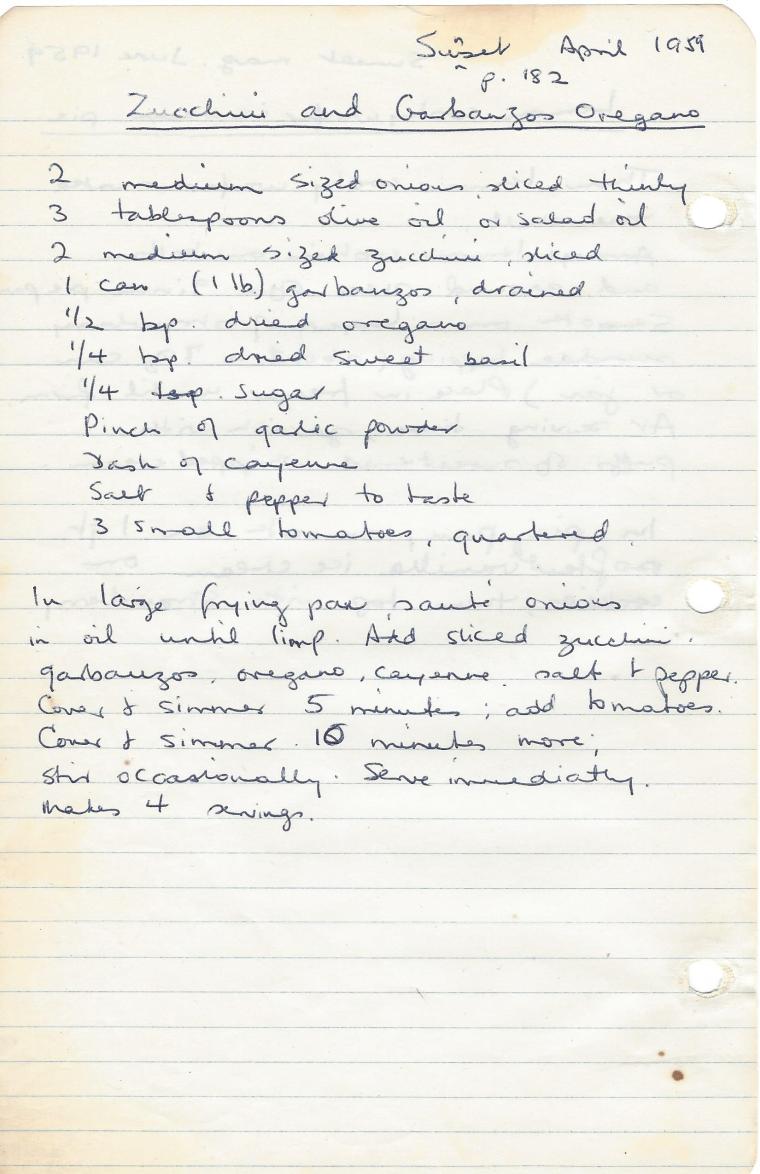 Sunset April 1959
p. 182
Zucchini and Garbanzos Oregano
2 medium sized onions, sliced thinly
3 tablespoons olive oil or salad oil
2 medium sized zucchini, sliced
1 can (1 lb.) garbanzos, drained
1/2 tsp. dried oregano
1/4 tsp. dried sweet basil
1/4 tsp. sugar
Pinch of garlic powder
Dash of cayenne
Salt & pepper to taste
3 small tomatoes, quartered.
In large frying pan, sauté onions
in oil until limp. Add sliced zucchini,
garbanzos, oregano, cayenne, salt & pepper.
Cover & simmer 5 minutes; add tomatoes.
Cover & simmer 10 minutes more;
stir occasionally. Serve immediatly.
Makes 4 servings.